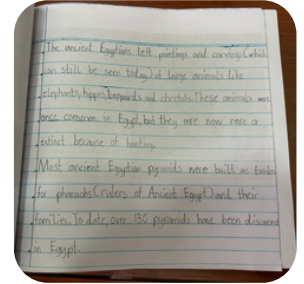 The ancient Egyptians left paintings and carvings (which
can still be seen today) of large animals like
elephants, hippos, leopards and cheetahs. These animals were
once common in Egypt, but they are now rare or
extinct because of hunting.
Most ancient Egyptian pyramids were built as tombs
for pharaohs (rulers of Ancient Egypt) and their
families. To date, over 130 pyramids have been discovered
in Egypt.